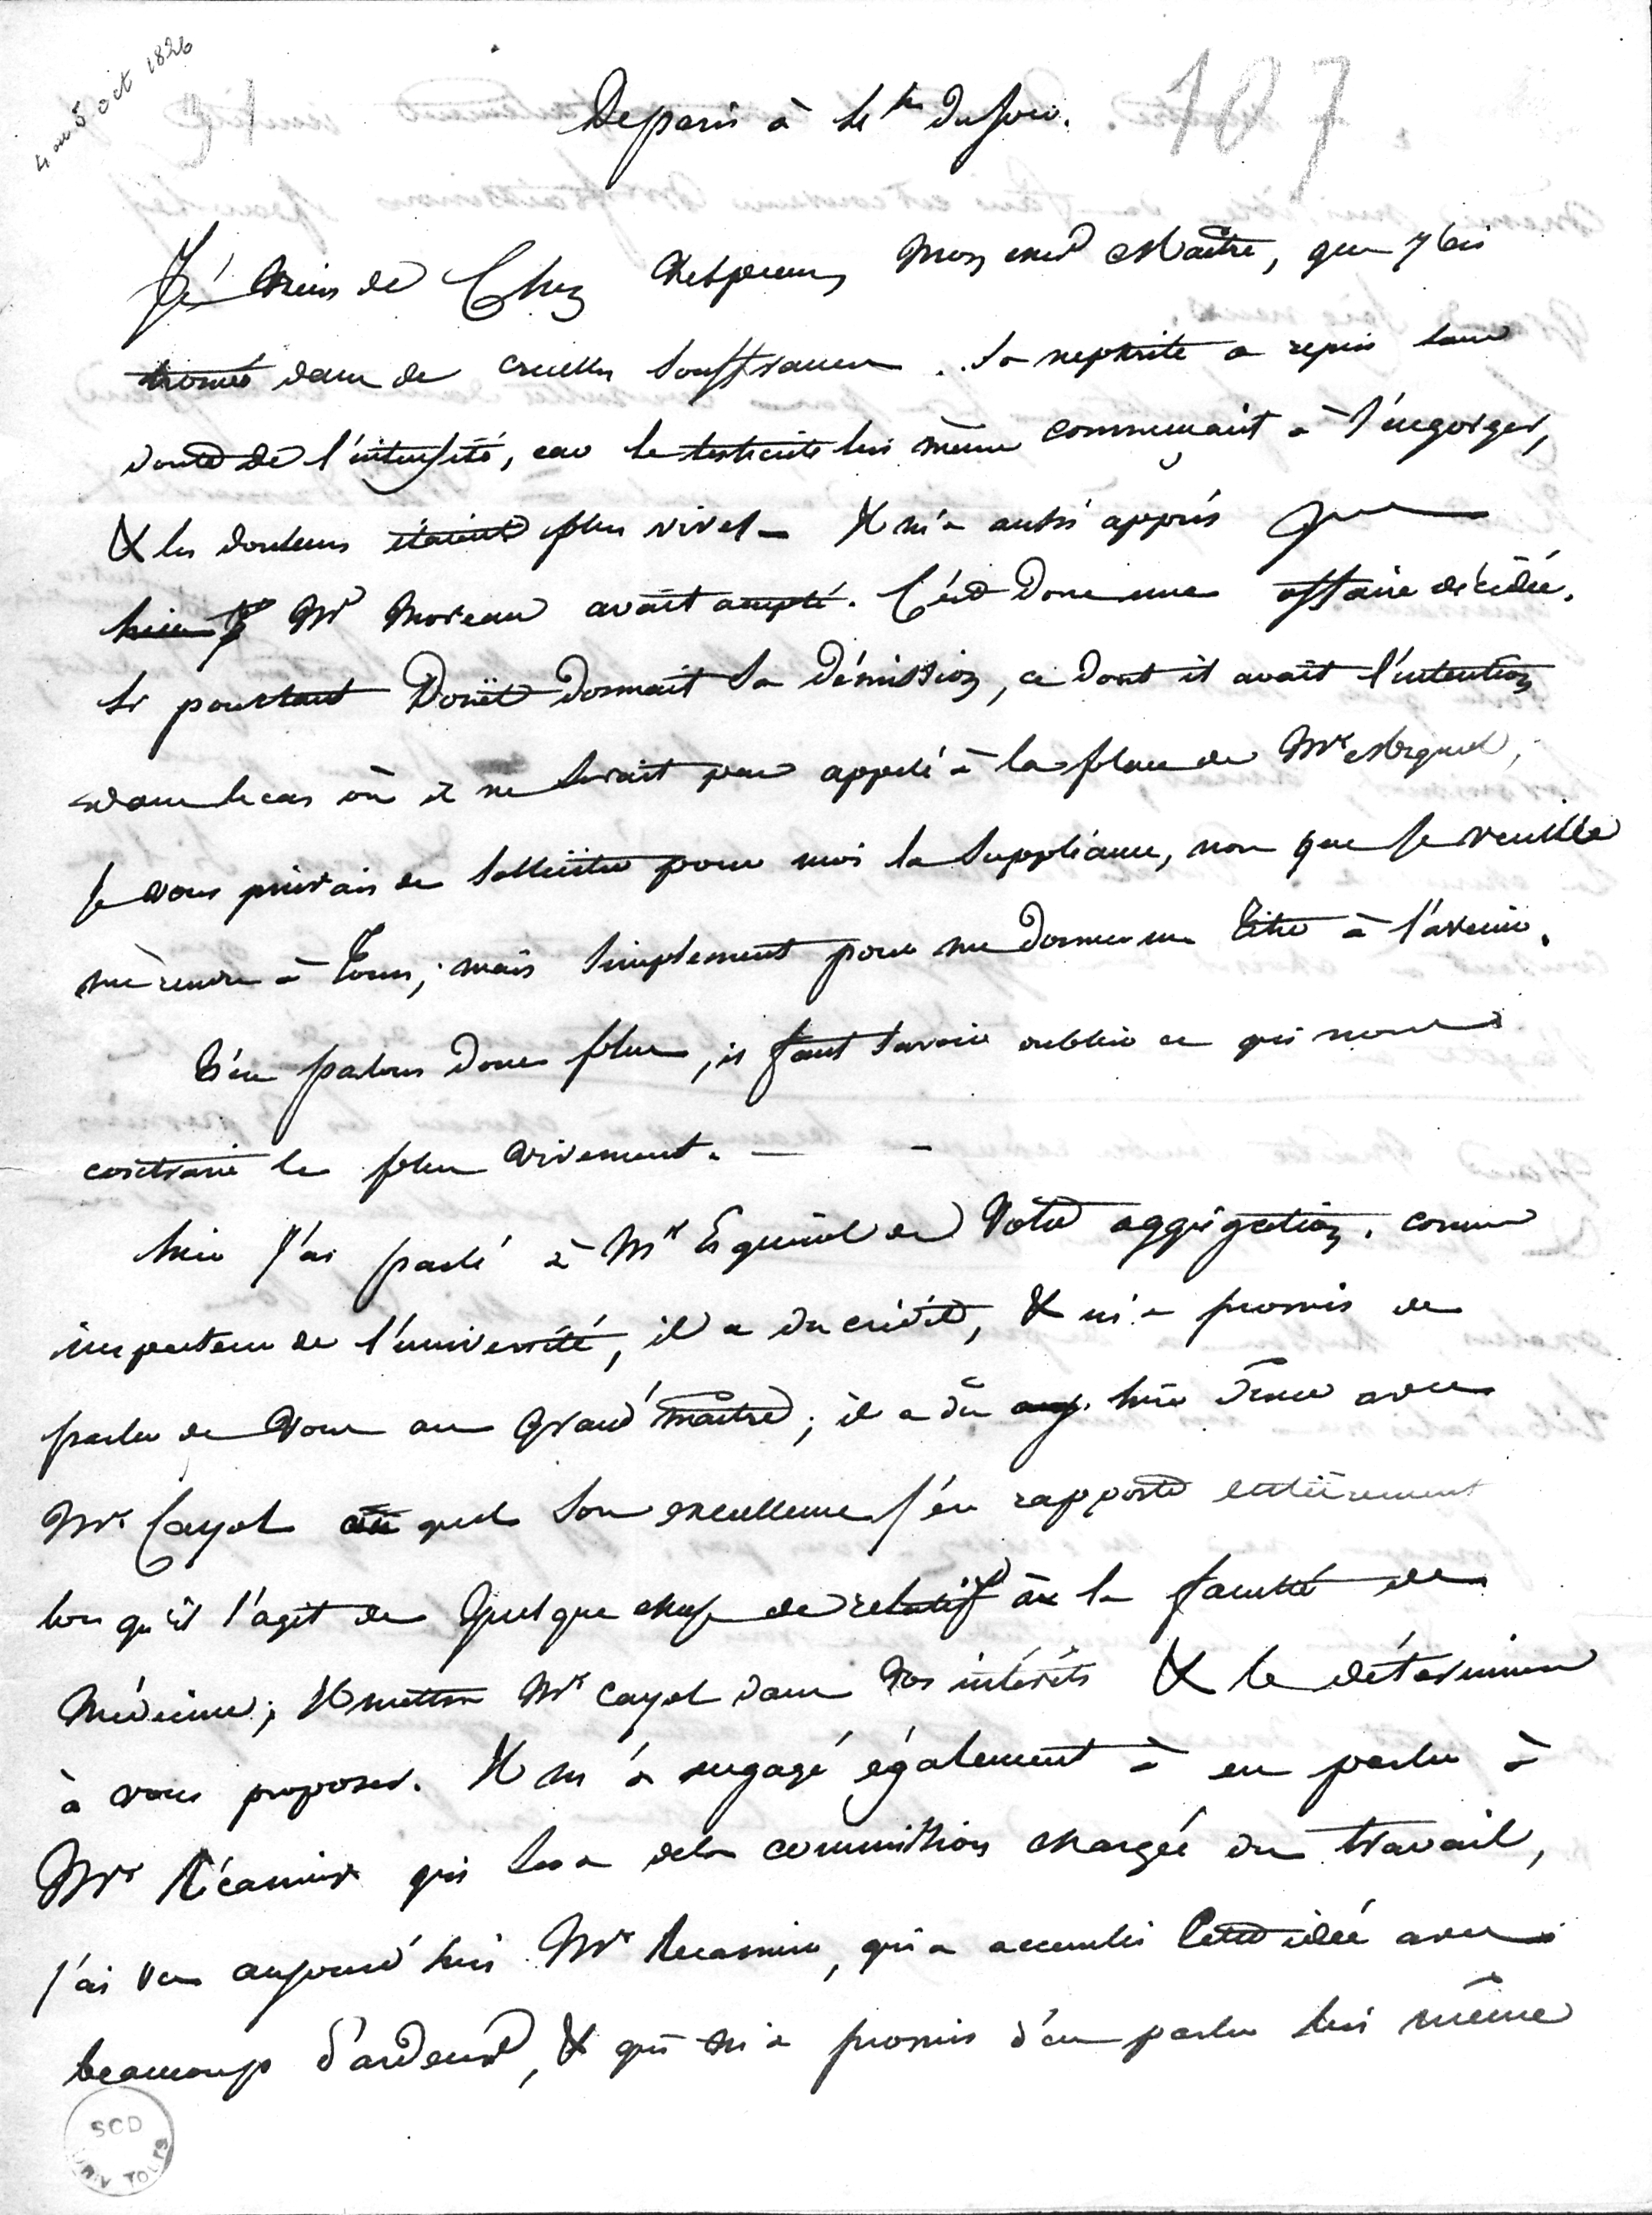 4 ou 5 oct 1826
107
De paris à 11 h du soir.
Je viens de chez Delpeau, mon cher Maître, que j'ai
trouvé dans de cruelles souffrances. Sa nephrite a repris sans
doute de l'intensité, car le testicule lui même commençait à s'engorger,
& les douleurs étaient plus vives - Il m'a aussi appris que
hier Mr Moreau avait accepté. C'est donc une affaire décidée.
Si pourtant Doüet donnait sa démission, ce dont il avait l'intention
dans le cas où il ne serait pas appelé à la place de Mr
je vous prierais de solliciter pour moi la suppléance, non que je veuille
me rendre à Tours, mais simplement pour me donner un titre à l'avenir.
N'en parlons donc plus, il faut savoir oublier ce qui nous
contrarie le plus vivement. —
hier j'ai parlé à Mr Esquirol de votre aggrégation. comme
inspecteur de l'université, il a du crédit, & m'a promis de
parler de vous au Grand maître; il a dû hier dîner avec
Mr Cayol auquel son excellence s'en rapporte entièrement
lorsqu'il s'agit de quelque chose de relatif à la faculté de
Médecine; Il mettra Mr Cayol dans vos intérêts & le déterminera
à vous proposer. Il m'a engagé également à en parler à
Mr Récamier qui sera de la commission chargée du travail,
j'ai vu aujourd'hui Mr Recamier, qui a accueilli cette idée avec
beaucoup d'ardeur, & qui m'a promis d'en parler lui même
SCD
UNIV TOURS